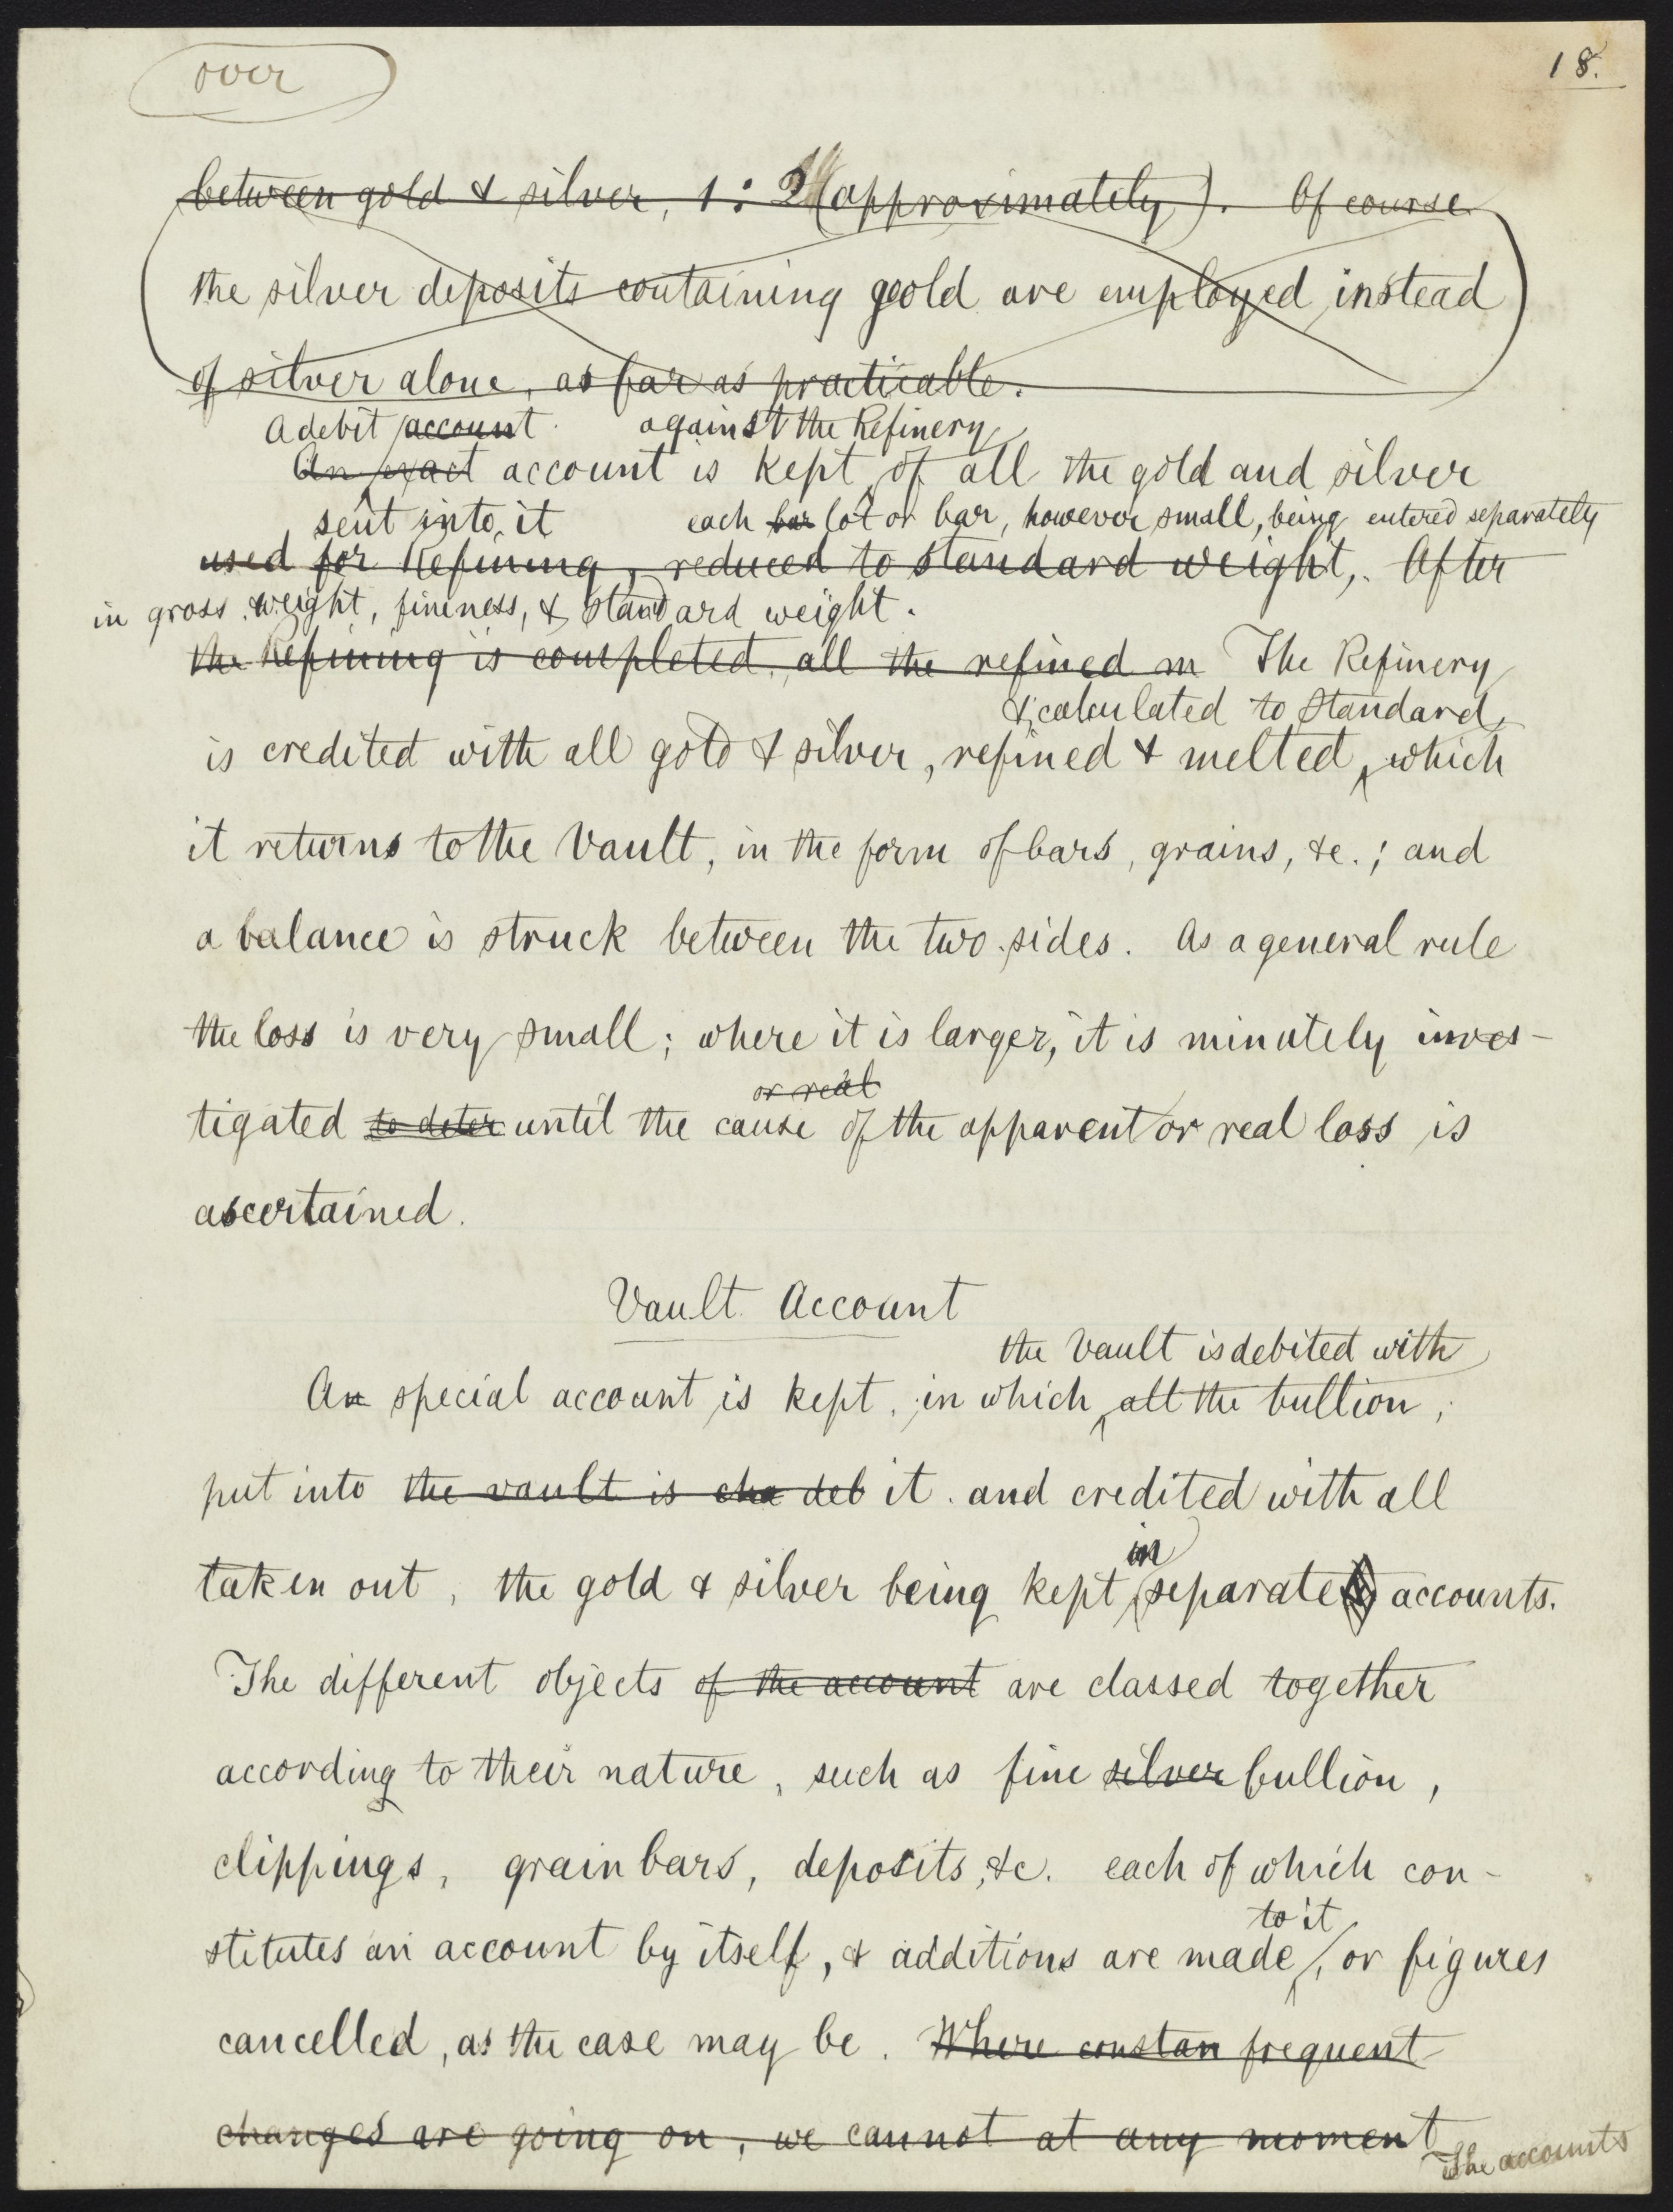 over
18.
between gold & silver, 1: 2 (approximately). Of course
the silver deposits containing gold are employed instead
of silver alone, as far as practicable.
A debit account against the Refinery
An exact account is kept of all the gold and silver
sent into it each bar lot or bar, however small, being entered separately
used for Refining, reduced to standard weight,. After
in gross weight, fineness, & standard weight.
the Refining is completed, all the refined m The Refinery
& calculated to Standard,
is credited with all gold & silver, refined & melted, which
it returns to the Vault, in the form of bars, grains, &c.; and
a balance is struck between the two sides. As a general rule
the loss is very small; where it is larger, it is minutely inves-
or real
tigated to deter until the cause of the apparent or real loss is
ascertained.
Vault Account
the Vault is debited with
An special account is kept, in which all the bullion,
put into the vault is cha deb it. and credited with all
in
taken out, the gold & silver being kept separate accounts.
The different objects of the account are classed together
according to their nature, such as fine silver bullion,
clippings, grain bars, deposits, &c. each of which con-
to it
stitutes an account by itself, & additions are made, or figures
cancelled, as the case may be. Where constan frequent
changes are going on, we cannot at any moment
The accounts